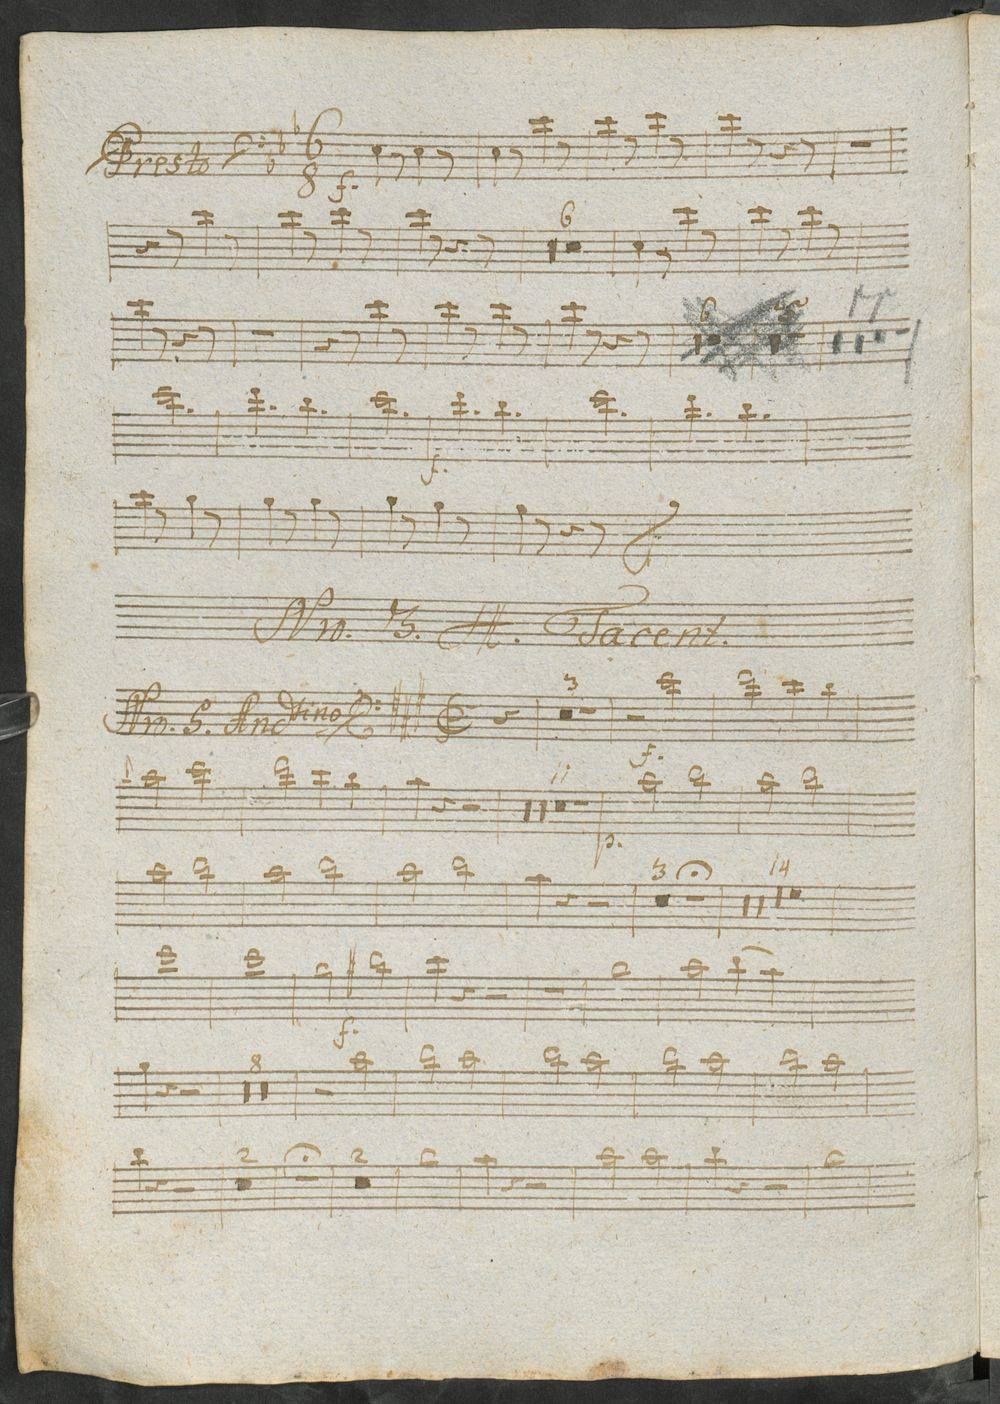 Presto 6 8 f.
6
6 17
f.
Nro. 3. 4. Tacent.
Nro. 5. Andtino 3 f.
11 p.
3 14
f.
8
2 2